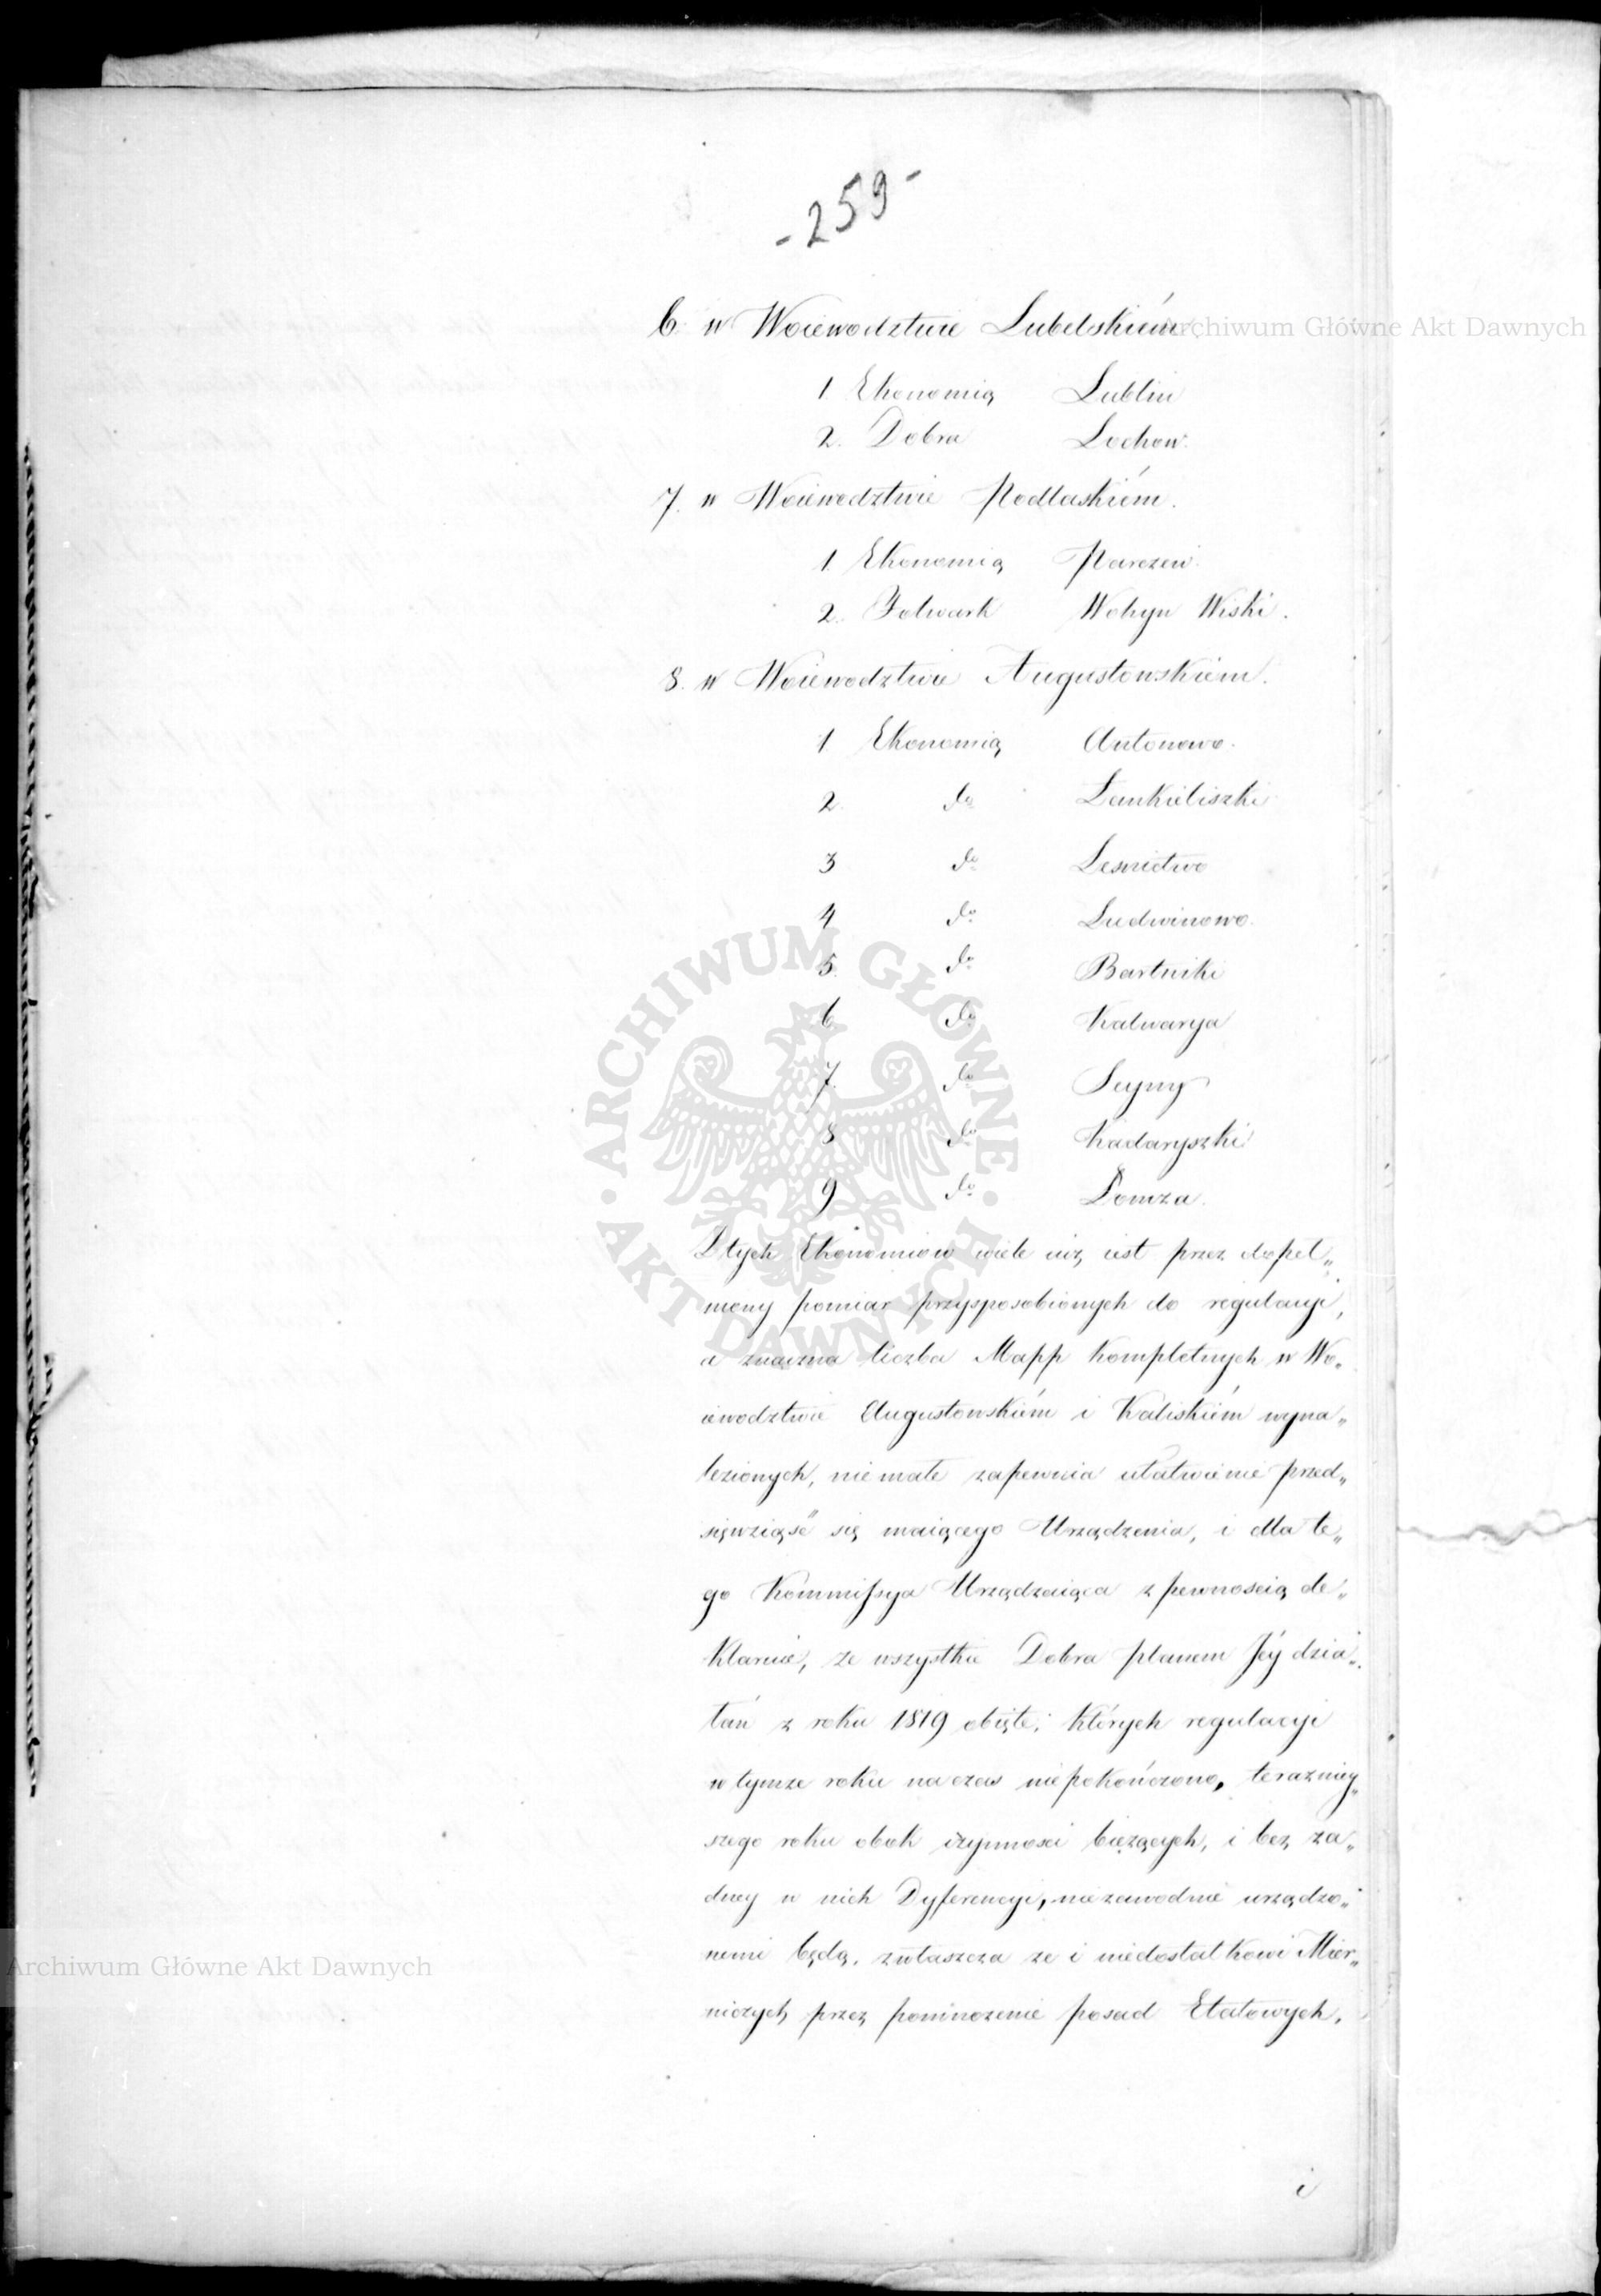 - 259 -
6. w Woiewodztwie Lubelskiém.
Archiwum Główne Akt Dawnych
1. Ekonomią Lublin
2. Dobra Lochow.
7. w Woiewodztwie Podlaskiém.
1. Ekonomią Parczew.
2. Folwark Wohyn Wiski.
8. w Woiewodztwie Augustowskiém.
1 Ekonomią Antonowo.
2. do Łankieliszki
3 do Lesnictwo
4 do Ludwinowo.
5. do Bartniki
6 do Kalwarya
7. do Seyny
8 do Kadaryszki
9 do Łomza.
ARCHIWUM GŁÓWNE · AKT DAWNYCH ·
Z tych Ekonomiow wiele iuż iest przez dopeł„
niony pomiar przysposobionych do regulacyi,
a znaczna liczba Mapp kompletnych w Wo„
iewodztwie Augustowskiém i Kaliskiém wyna„
lezionych, nie małe zapewnia ułatwienie przed„
sięwziąść się maiącego Urządzenia, i dla te„
go Kommissya Urządzaiąca z pewnoscią de„
klaruie, że wszystkie Dobra planem Jéy dzia„
łań z roku 1819 obięte, których regulacyi
w tymze roku na czas niepokończono, terazniey„
szego roku obok czynnosci bieżących, i bez ża„
dney w nich Dyferencyi, niezawodnie urządzo„
nemi będą, zwłaszcza ze i niedostatkowi Mier„
niczych przez pomnozenie posad Etatowych,
Archiwum Główne Akt Dawnych
i